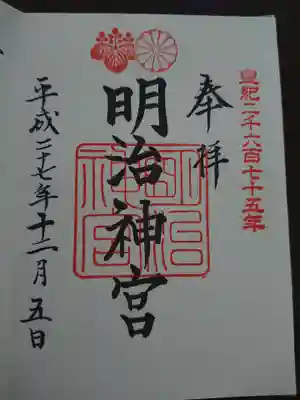 皇紀二千六百七十五年
奉拝
明治神宮
明治神宮
平成二十七年十二月五日